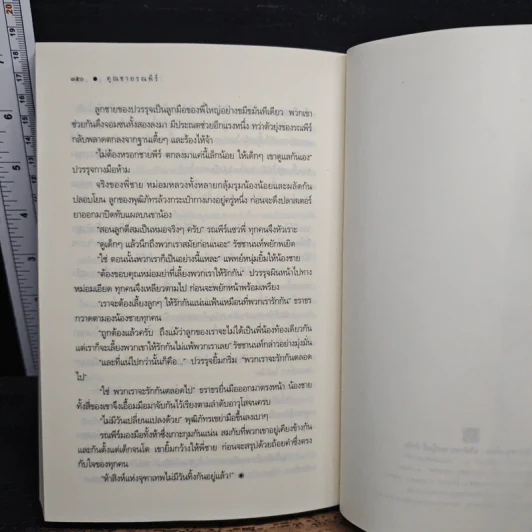 ๓๕๖ ● คุณชายรณพีร์
ลูกชายของปวรรุจเป็นลูกมือของพี่ใหญ่อย่างขมีขมันทีเดียว พวกเขา
ช่วยกันดึงจอมซนทั้งสองลงมา มีประณตช่วยอีกแรงหนึ่ง ทว่าตัวยุ่งของรณพีร์
กลับพลาดตกลงจากฐานเตี้ยๆ และร้องไห้จ้า
“ไม่ต้องหรอกชายพีร์ ตกลงมาแค่นี้เล็กน้อย ให้เด็กๆ เขาดูแลกันเอง”
ปวรรุจกางมือห้าม
จริงของพี่ชาย หม่อมหลวงทั้งหลายกลุ้มรุมน้องน้อยและผลัดกัน
ปลอบโยน ลูกของพุฒิภัทรล้วงกระเป๋ากางเกงอยู่ครู่หนึ่ง ก่อนจะดึงปลาสเตอร์
ยาออกมาปิดทับแผลบนขาน้อง
“สอนลูกดีสมเป็นหมอจริงๆ ครับ” รณพีร์แซวพี่ ทุกคนจึงหัวเราะ
“ดูเด็กๆ แล้วนึกถึงพวกเราสมัยก่อนเนอะ” รัชชานนท์พยักพเยิด
“ใช่ ตอนนั้นพวกเราก็เป็นอย่างนี้แหละ” แพทย์หนุ่มยิ้มให้น้องชาย
“ต้องขอบคุณหม่อมย่าที่เลี้ยงพวกเราให้รักกัน” ปวรรุจผินหน้าไปทาง
หม่อมเอียด ทุกคนจึงเหลียวตามไป ก่อนจะพยักหน้าพร้อมเพรียง
“เราจะต้องเลี้ยงลูกๆ ให้รักกันแน่นแฟ้นเหมือนที่พวกเรารักกัน” ธราธร
กวาดตามองน้องชายทุกคน
“ถูกต้องแล้วครับ ถึงแม้ว่าลูกของเราจะไม่ได้เป็นพี่น้องท้องเดียวกัน
แต่เราก็จะเลี้ยงพวกเขาให้รักกันไม่แพ้พวกเราเลย” รัชชานนท์กล่าวอย่างมุ่งมั่น
“และที่แน่ไปกว่านั้นก็คือ...” ปวรรุจยิ้มกริ่ม “พวกเราจะรักกันตลอด
ไป”
“ใช่ พวกเราจะรักกันตลอดไป” ธราธรยื่นมือออกมาตรงหน้า น้องชาย
ทั้งสี่ของเขาจึงเอื้อมมือมาจับกันไว้เรียงตามลำดับอาวุโสจนครบ
“ไม่มีวันเปลี่ยนแปลงด้วย” พุฒิภัทรเขย่ามือขึ้นลงเบาๆ
รณพีร์มองมือทั้งห้าซึ่งเกาะกุมกันแน่น สมกับที่พวกเขาอยู่เคียงข้างกัน
และกันตั้งแต่เด็กจนโต เขายิ้มกว้างให้พี่ชาย ก่อนจะสรุปด้วยถ้อยคำซึ่งตรง
กับใจของทุกคน
“ห้าสิงห์แห่งจุฑาเทพไม่มีวันทิ้งกันอยู่แล้ว!” ◉